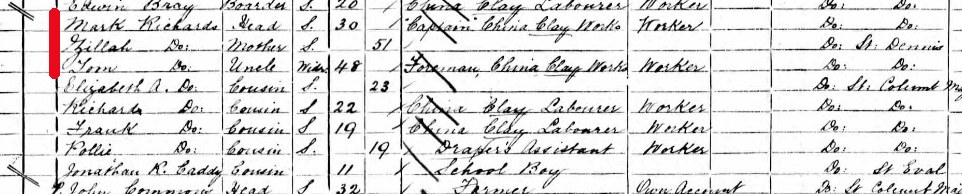 Edwin Bray Boarder S. 20 China Clay Labourer Worker Do: Do:
Mark Richards Head S. 30 Captain, China Clay Works Worker Do: Do:
Zillah Do: Mother S. 51 Do: St. Dennis
Tom Do: Uncle Widr. 48 Foreman, China Clay Works Worker Do: Do:
Elizabeth A. Do: Cousin S. 23 Do: St. Columb
Richard Do: Cousin S. 22 China Clay Labourer Worker Do: Do:
Frank Do: Cousin S. 19 China Clay Labourer Worker Do: Do:
Pollie Do: Cousin S. 19 Drapers Assistant Worker Do: Do:
Jonathan R. Caddy Cousin 11 School Boy Do: St Eval
John Head S 32 Farmer Own Account Do: St Columb